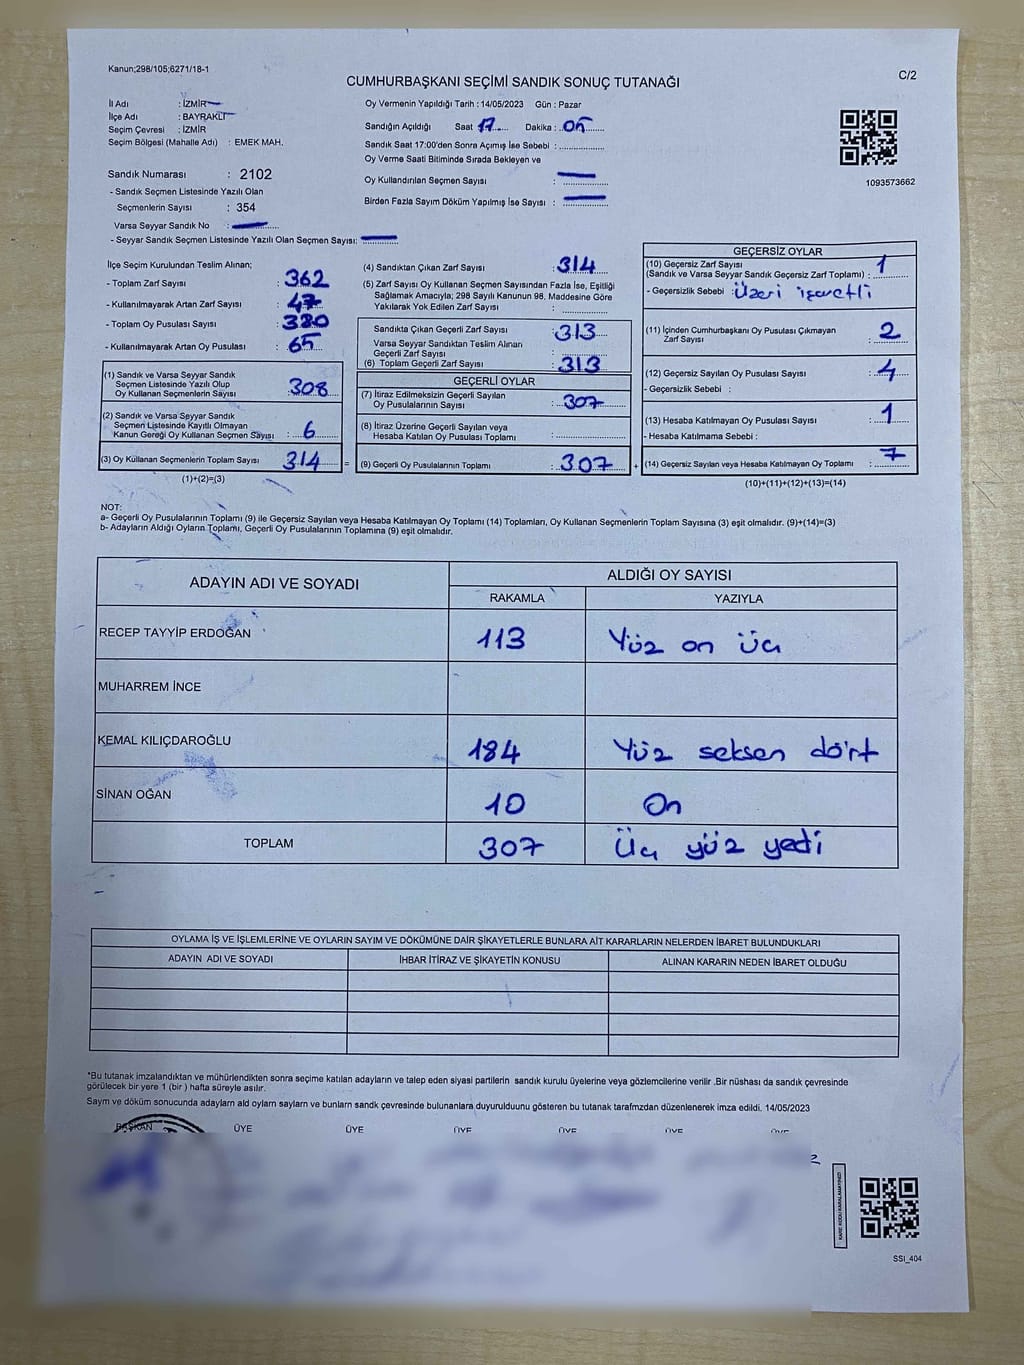 Kanun;298/105;6271/18-1
C/2
CUMHURBAŞKANI SEÇİMİ SANDIK SONUÇ TUTANAĞI
İl Adı : İZMİR
İlçe Adı : BAYRAKLI
Seçim Çevresi : İZMİR
Seçim Bölgesi (Mahalle Adı) : EMEK MAH.
Sandık Numarası : 2102
- Sandık Seçmen Listesinde Yazılı Olan
Seçmenlerin Sayısı : 354
Varsa Seyyar Sandık No :
- Seyyar Sandık Seçmen Listesinde Yazılı Olan Seçmen Sayısı:
Oy Vermenin Yapıldığı Tarih : 14/05/2023 Gün : Pazar
Sandığın Açıldığı Saat 17 Dakika : 05
Sandık Saat 17:00'den Sonra Açımış İse Sebebi :
Oy Verme Saati Bitiminde Sırada Bekleyen ve
Oy Kullandırılan Seçmen Sayısı :
Birden Fazla Sayım Döküm Yapılmış İse Sayısı :
1093573662
İlçe Seçim Kurulundan Teslim Alınan;
- Toplam Zarf Sayısı : 362
- Kullanılmayarak Artan Zarf Sayısı : 47
- Toplam Oy Pusulası Sayısı : 380
- Kullanılmayarak Artan Oy Pusulası : 65
(1) Sandık ve Varsa Seyyar Sandık
Seçmen Listesinde Yazılı Olup
Oy Kullanan Seçmenlerin Sayısı : 308
(2) Sandık ve Varsa Seyyar Sandık
Seçmen Listesinde Kayıtlı Olmayan
Kanun Gereği Oy Kullanan Seçmen Sayısı : 6
(3) Oy Kullanan Seçmenlerin Toplam Sayısı 314 =
(1)+(2)=(3)
(4) Sandıktan Çıkan Zarf Sayısı : 314
(5) Zarf Sayısı Oy Kullanan Seçmen Sayısından Fazla İse, Eşitliği
Sağlamak Amacıyla; 298 Sayılı Kanunun 98. Maddesine Göre
Yakılarak Yok Edilen Zarf Sayısı :
Sandıkta Çıkan Geçerli Zarf Sayısı : 313
Varsa Seyyar Sandıktan Teslim Alınan
Geçerli Zarf Sayısı :
(6) Toplam Geçerli Zarf Sayısı : 313
GEÇERLİ OYLAR
(7) İtiraz Edilmeksizin Geçerli Sayılan
Oy Pusulalarının Sayısı : 307
(8) İtiraz Üzerine Geçerli Sayılan veya
Hesaba Katılan Oy Pusulası Toplamı :
(9) Geçerli Oy Pusulalarının Toplamı : 307 +
GEÇERSİZ OYLAR
(10) Geçersiz Zarf Sayısı
(Sandık ve Varsa Seyyar Sandık Geçersiz Zarf Toplamı) : 1
- Geçersizlik Sebebi : Üzeri işaretli
(11) İçinden Cumhurbaşkanı Oy Pusulası Çıkmayan
Zarf Sayısı : 2
(12) Geçersiz Sayılan Oy Pusulası Sayısı : 4
- Geçersizlik Sebebi :
(13) Hesaba Katılmayan Oy Pusulası Sayısı : 1
- Hesaba Katılmama Sebebi :
(14) Geçersiz Sayılan veya Hesaba Katılmayan Oy Toplamı : 7
(10)+(11)+(12)+(13)=(14)
NOT:
a- Geçerli Oy Pusulalarının Toplamı (9) ile Geçersiz Sayılan veya Hesaba Katılmayan Oy Toplamı (14) Toplamları, Oy Kullanan Seçmenlerin Toplam Sayısına (3) eşit olmalıdır. (9)+(14)=(3)
b- Adayların Aldığı Oyların Toplamı, Geçerli Oy Pusulalarının Toplamına (9) eşit olmalıdır.
ADAYIN ADI VE SOYADI ALDIĞI OY SAYISI
RAKAMLA YAZIYLA
RECEP TAYYİP ERDOĞAN 113 Yüz on üç
MUHARREM İNCE
KEMAL KILIÇDAROĞLU 184 Yüz seksen dört
SİNAN OĞAN 10 On
TOPLAM 307 Üç yüz yedi
OYLAMA İŞ VE İŞLEMLERİNE VE OYLARIN SAYIM VE DÖKÜMÜNE DAİR ŞİKAYETLERLE BUNLARA AİT KARARLARIN NELERDEN İBARET BULUNDUKLARI
ADAYIN ADI VE SOYADI İHBAR İTİRAZ VE ŞİKAYETİN KONUSU ALINAN KARARIN NEDEN İBARET OLDUĞU
*Bu tutanak imzalandıktan ve mühürlendikten sonra seçime katılan adayların ve talep eden siyasi partilerin sandık kurulu üyelerine veya gözlemcilerine verilir .Bir nüshası da sandık çevresinde
görülecek bir yere 1 (bir ) hafta süreyle asılır.
Sayım ve döküm sonucunda adayların ald oyların sayların ve bunların sandk çevresinde bulunanlara duyurulduunu gösteren bu tutanak tarafmzdan düzenlenerek imza edildi. 14/05/2023
BAŞKAN ÜYE ÜYE ÜYE ÜYE ÜYE ÜYE
KARE KODU KARALAMAYINIZ!
SSİ_404